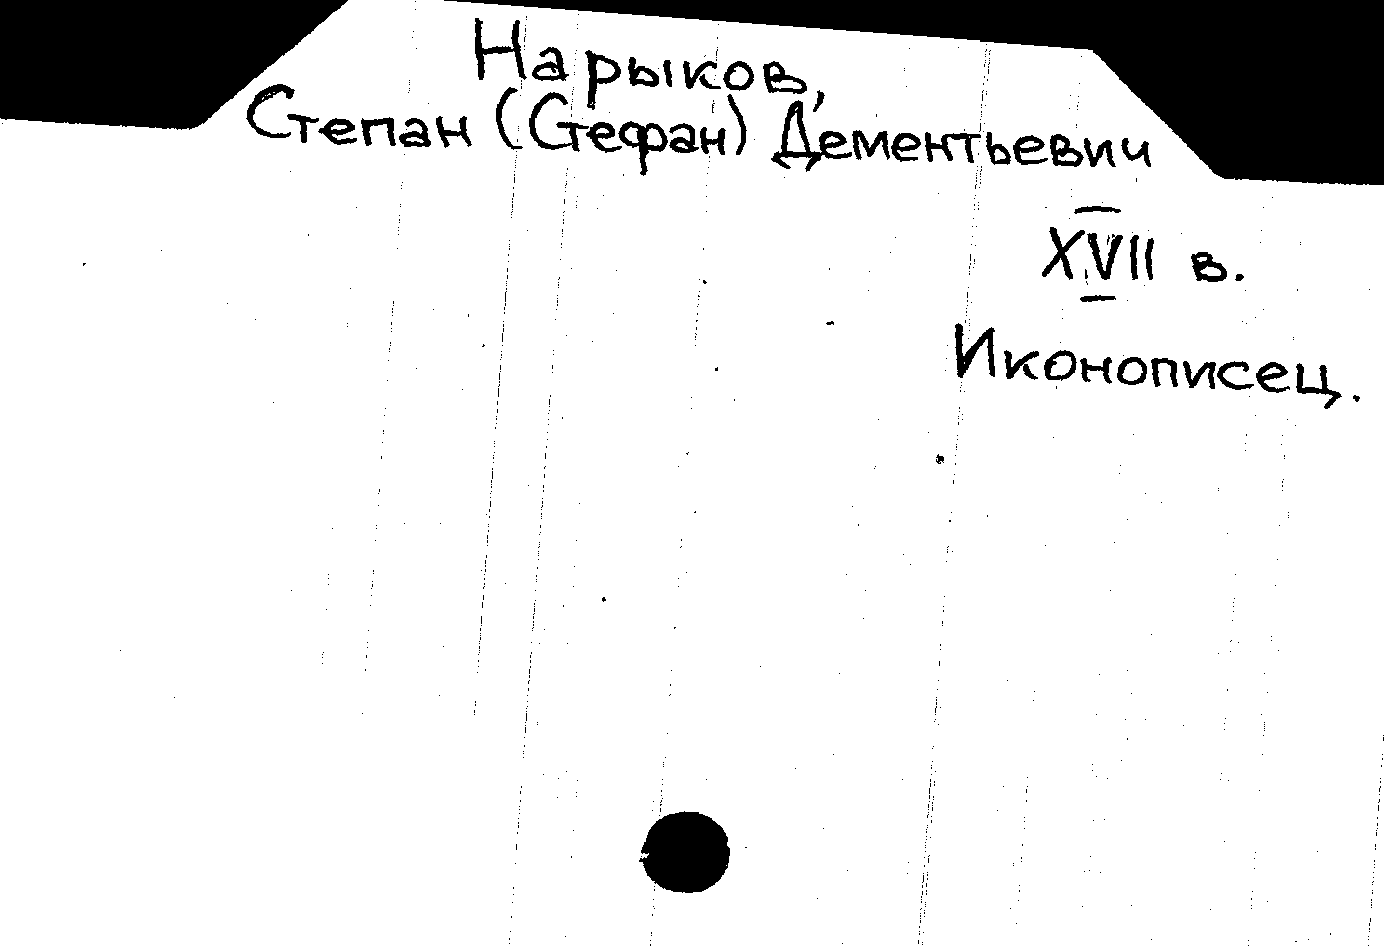 Нарыков,
Степан (Стефан) Дементьевич
XVII в.
Иконописец.